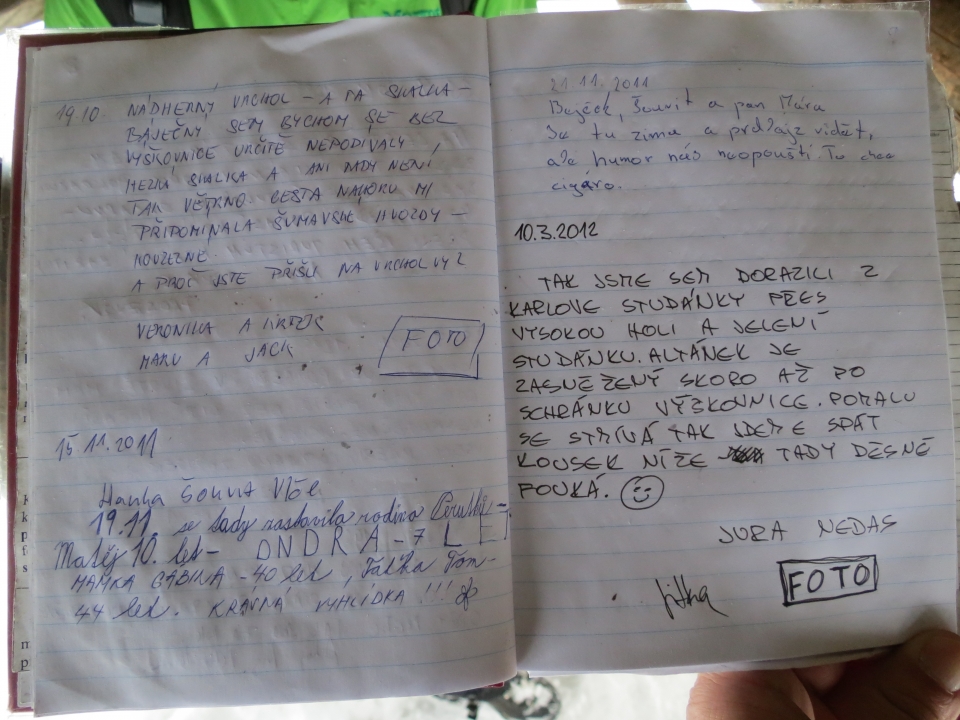 19.10. NÁDHERNÝ VRCHOL - A TA SKALKA -
BÁJEČNÝ SEM BYCHOM SE BEZ
VÝŠKOVNICE URČITĚ NEPODÍVALY
HEZKÁ SKALKA A ANI TADY NENÍ
TAK VĚTRNO. CESTA NAHORU MI
PŘIPOMÍNALA ŠUMAVSKÉ HVOZDY -
KOUZELNÉ.
A PROČ JSTE PŘIŠLI NA VRCHOL VY?
VERONIKA A
MARU A JACK
FOTO
15 11. 2011
Hanka
19.11. se tady zastavila rodina
Matěj 10. let - ONDRA - 7 LET
MAMKA GÁBINA - 40 let, Taťka Tom-
44 let. KRÁSNÁ VYHLÍDKA !!!
21.11.2011
a pan Mára
Je tu zima a vidět,
ale humor nás neopouští. To chce
cigáro.
10.3.2012
TAK JSME SEM DORAZILI Z
KARLOVE STUDÁNKY PŘES
VYSOKOU HOLI A JELENÍ
STUDÁNKU. ALTÁNEK JE
ZASNĚŽENÝ SKORO AŽ PO
SCHRÁNKU VÝŠKOVNICE. POMALU
SE STMÍVÁ TAK JDEME SPÁT
KOUSEK NÍŽE TADY DĚSNĚ
FOUKÁ.
JURA NEDAS
Jitka
FOTO